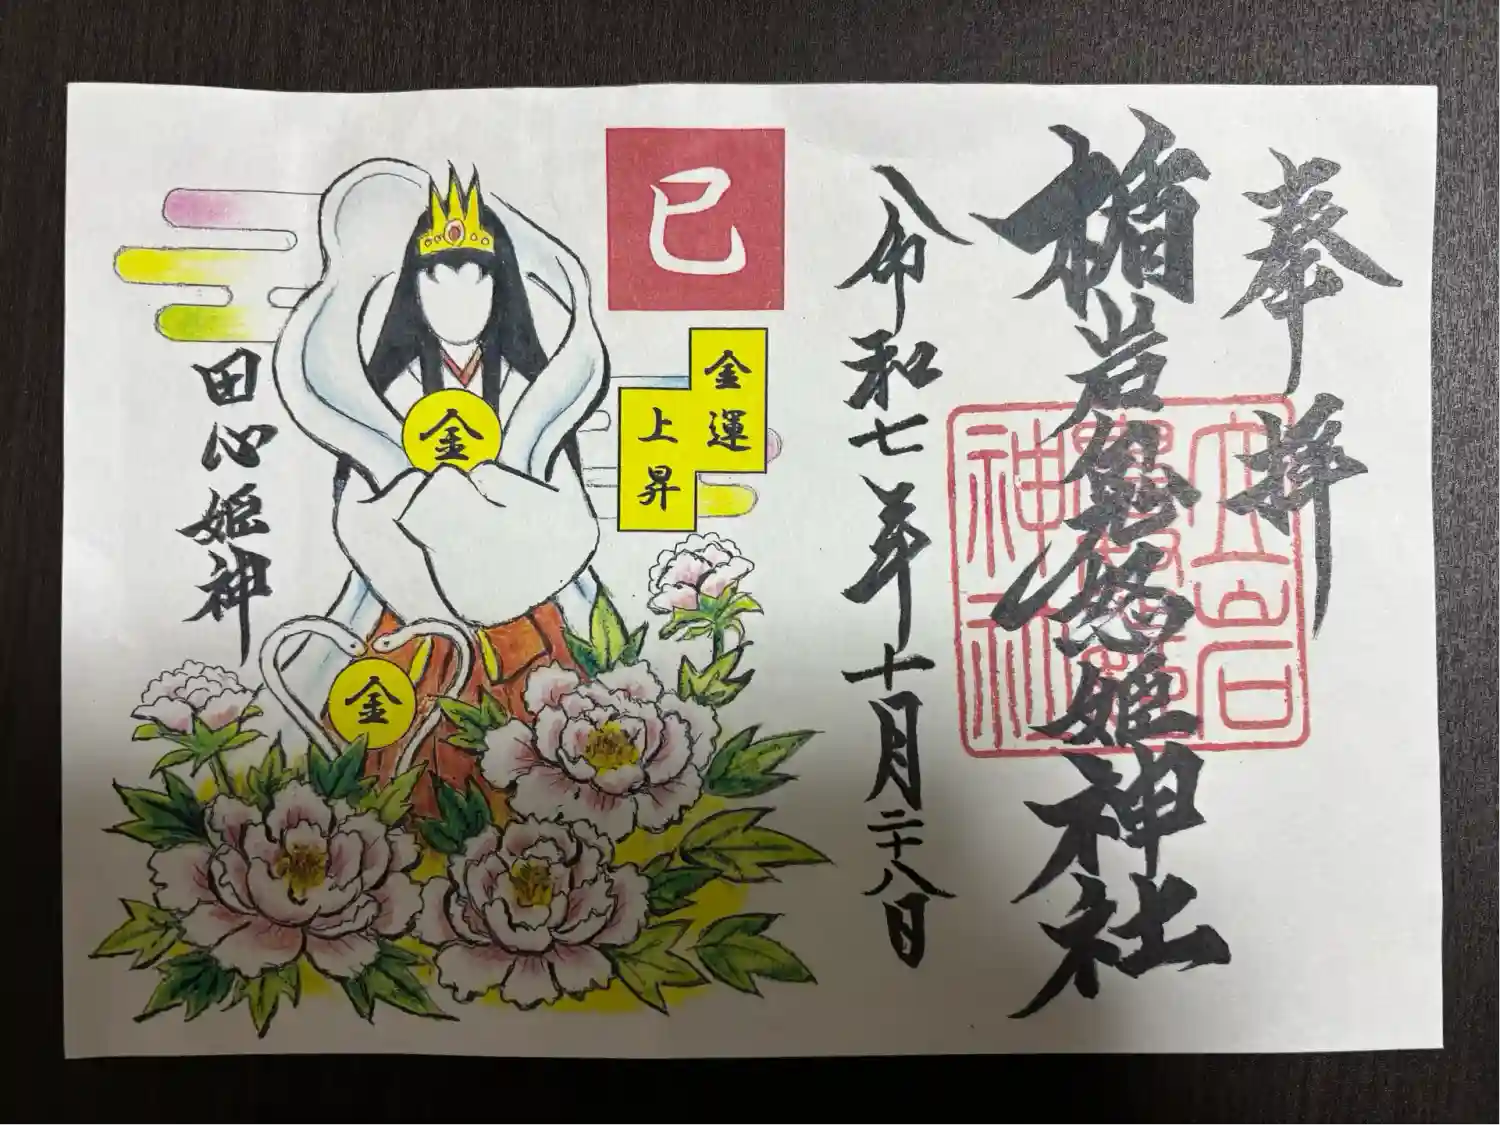 奉拝
楯岩鬼怒姫神社
立岩
神社
令和七年十月二十八日
巳
金運
上昇
金
金
田心姫神